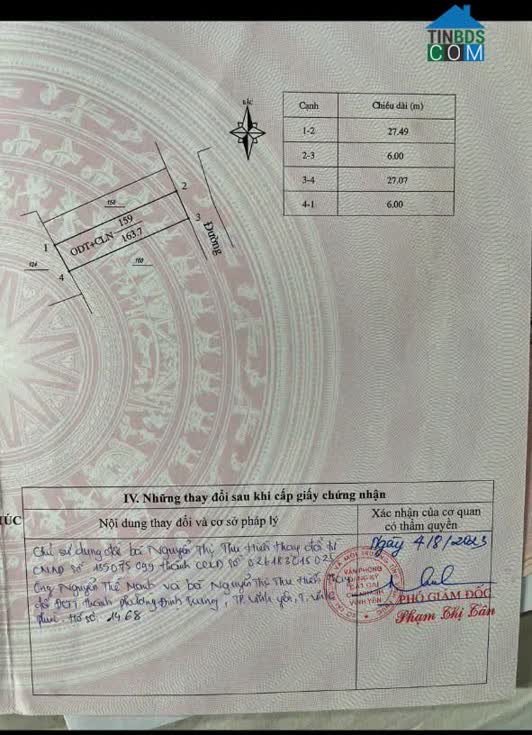 TINBDS
COM
BẮC
Cạnh Chiều dài (m)
1-2 27.49
2-3 6.00
3-4 27.07
4-1 6.00
158
2
3
1
4
ODT+CLN 159
163.7
160
Đường
IV. Những thay đổi sau khi cấp giấy chứng nhận
Nội dung thay đổi và cơ sở pháp lý
Xác nhận của cơ quan
có thẩm quyền
ÚC
Chủ sử dụng đất bà Nguyễn Thị Thu Huế thay đổi từ
CMND số thành CCCD số
Ông Nguyễn Thế Mạnh và bà Nguyễn Thị Thu Huế thay
đổi thành phường Định Trung, TP Vĩnh Yên, T. Vĩnh
Phúc. Hồ sơ: 1468
Ngày 4/8/2023
VĂN PHÒNG
ĐĂNG KÝ
ĐẤT ĐAI
CHI NHÁNH
VĨNH YÊN
PHÓ GIÁM ĐỐC
Phạm Thị Cần